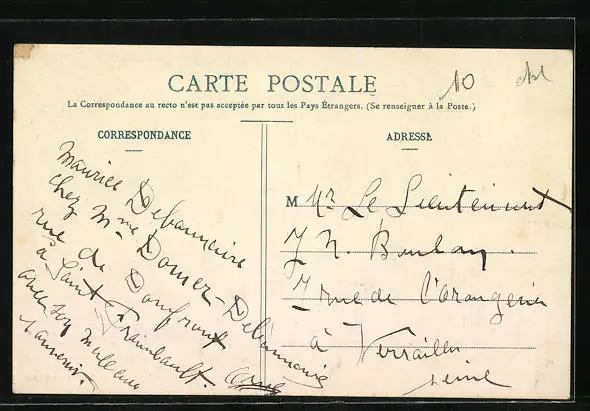 CARTE POSTALE
10
La Correspondance au recto n'est pas acceptée par tous les Pays Étrangers. (Se renseigner à la Poste.)
CORRESPONDANCE
Maurice Debonnaire
chez Mme Domer-Debonnaire
rue de Domfront
à Saint Fraimbault. Orne
ADRESSE
M Mr Le Lieutenant
J N. Boulay.
7 rue de l'Orangerie
à Versailles
seine